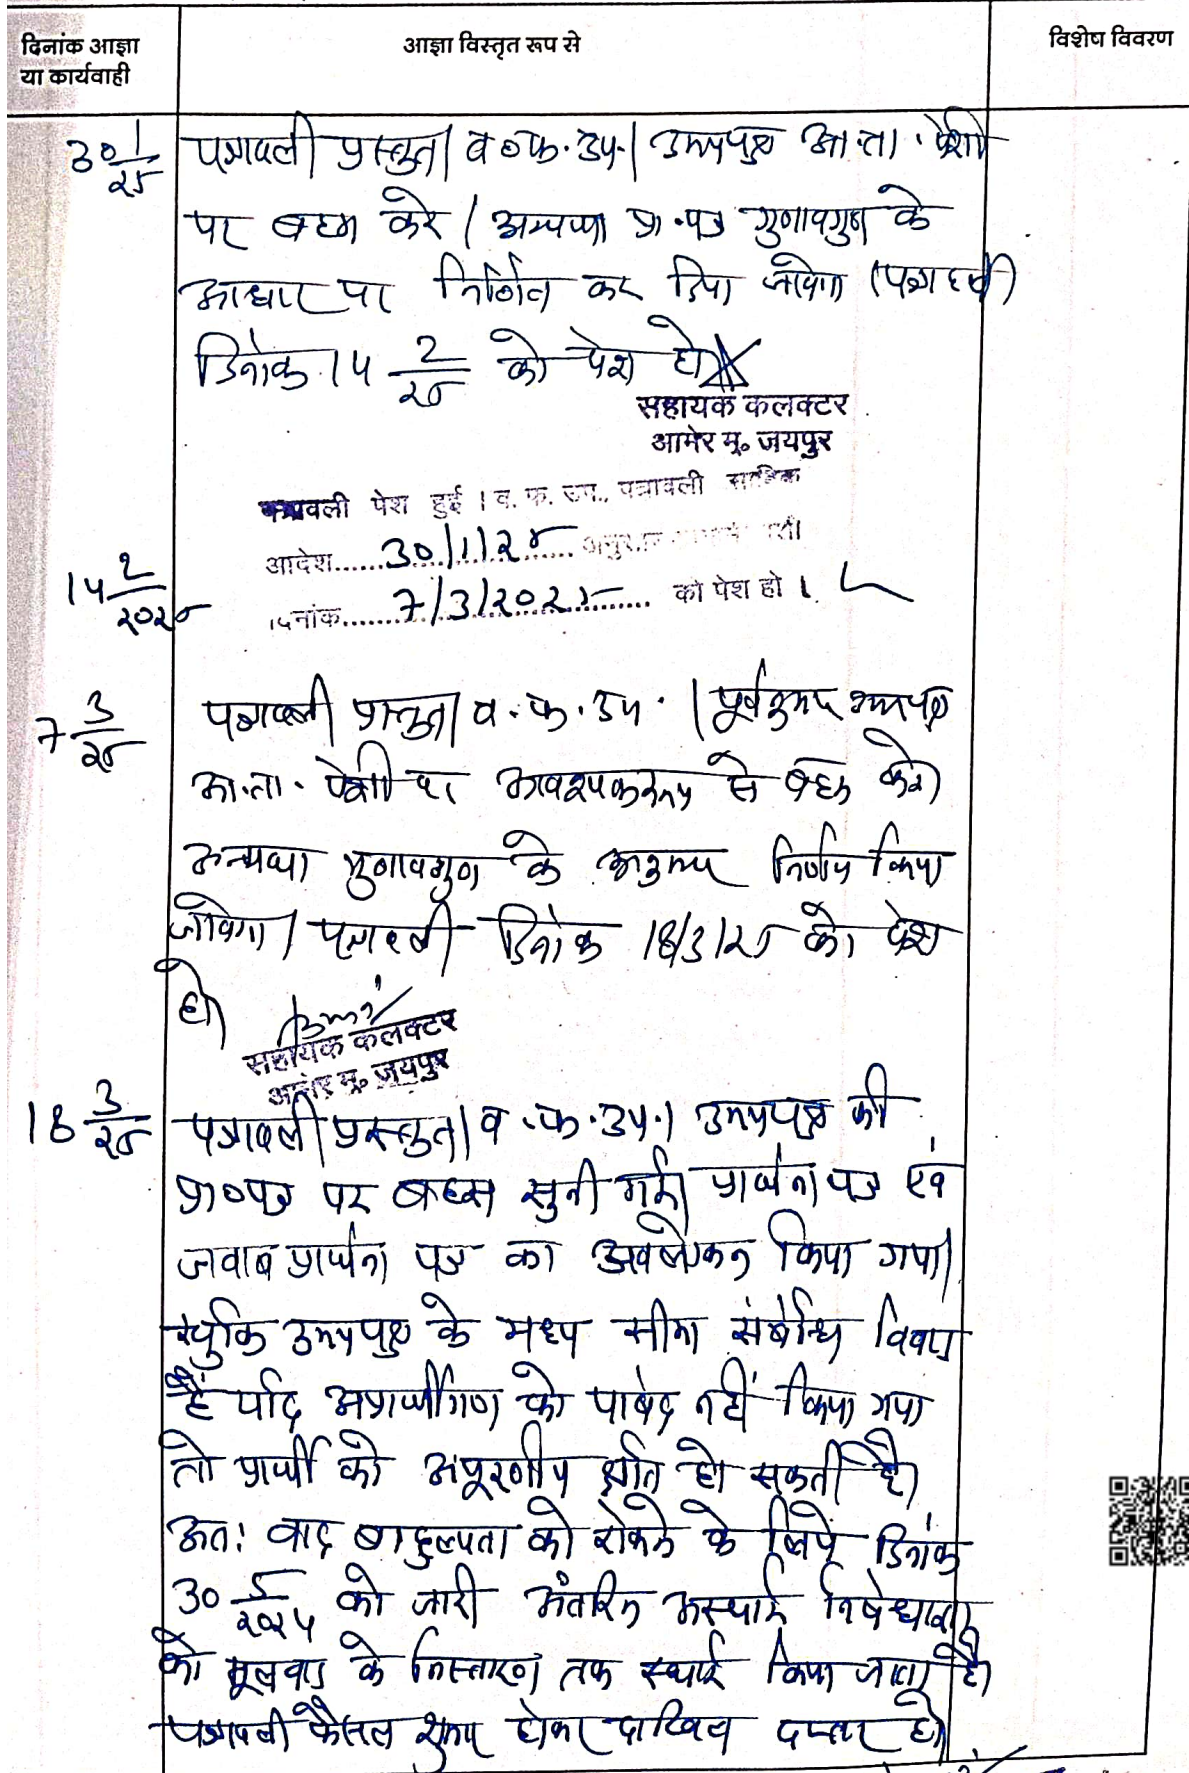 दिनांक आज्ञा
या कार्यवाही
आज्ञा विस्तृत रूप से
विशेष विवरण
30 1/25 पत्रावली प्रस्तुत। व०फ.उप.। उभयपक्ष आ.ता. पेशी
पर बहस करे। अन्यथा प्रा.पत्र गुणावगुण के
आधार पर निर्णित कर दिया जावेगा। पत्रावली
दिनांक 14 2/25 को पेश हो
सहायक कलक्टर
आमेर मु० जयपुर
14 2/2025
पत्रावली पेश हुई । व. फ. उप., पत्रावली साबिक
आदेश......30/1/25......
दिनांक......7/3/2025...... को पेश हो ।
7 3/25 पत्रावली प्रस्तुत। व.फ.उप.। पूर्वानुसार उभयपक्ष
आ.ता. पेशी पर आवश्यकरूप से बहस करे।
अन्यथा गुणावगुण के अनुरूप निर्णय किया
जावेगा। पत्रावली दिनांक 18/3/25 को पेश
हो।
सहायक कलक्टर
आमेर मु० जयपुर
18 3/25 पत्रावली प्रस्तुत। व.फ.उप.। उभयपक्ष की
प्रा०पत्र पर बहस सुनी गई। प्रार्थना पत्र एवं
जवाब प्रार्थना पत्र का अवलोकन किया गया।
चुंकि उभयपक्ष के मध्य सीमा संबंधि विवाद
है यदि अप्रार्थीगण को पाबंद नहीं किया गया
तो प्रार्थी को अपूरणीय क्षति हो सकती है।
अत: वाद बाहुल्यता को रोकने के लिये दिनांक
30 5/2024 को जारी अंतरिम अस्थाई निषेधाज्ञा
को मूलवाद के निस्तारण तक स्थाई किया जाता है।
पत्रावली फैसल शुमार होकर दाखिल दफ्तर हो।